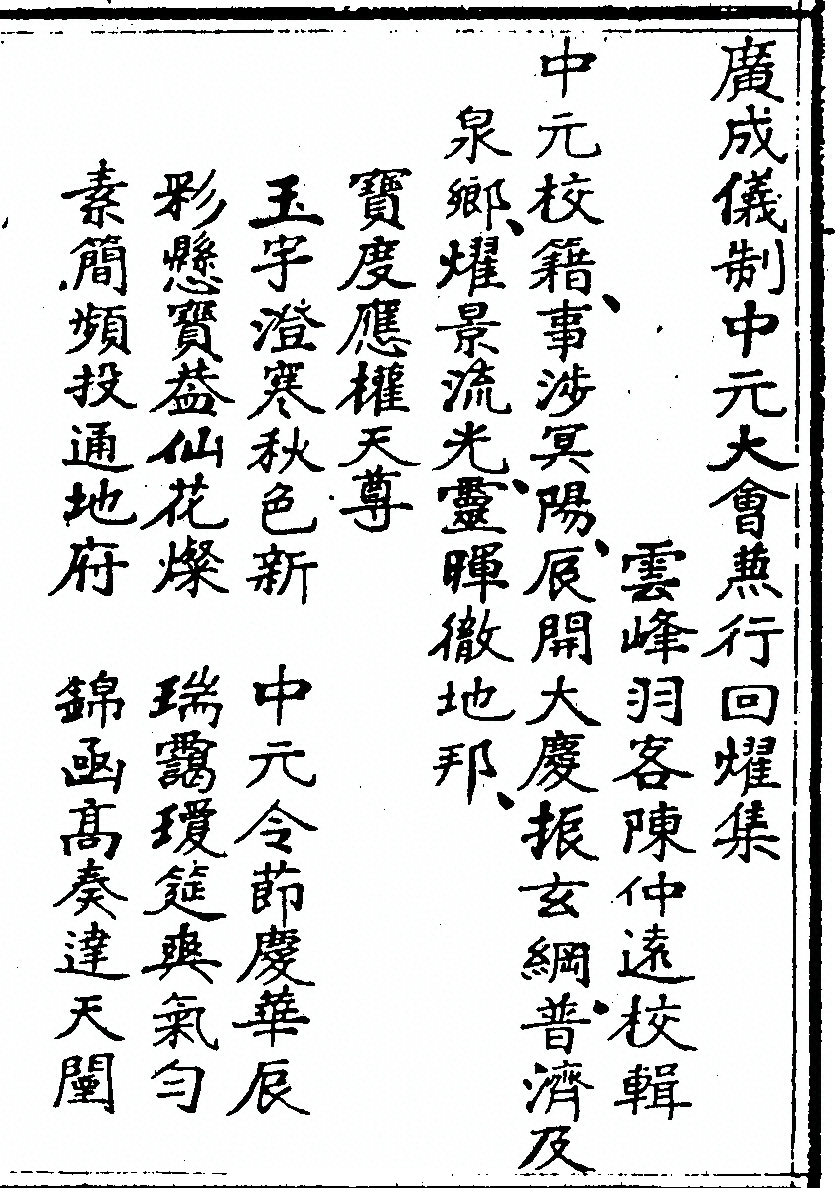 廣成儀制中元大會兼行回耀集
雲峰羽客陳仲遠校輯
中元校籍、事涉冥陽、辰開大慶振玄綱、普濟及
泉鄉、燿景流光、靈暉徹地邦、
寶度應權天尊
玉宇澄寒秋色新 中元令節慶華辰
彩懸寶蓋仙花燦 瑞靄瓊筵爽氣勻
素簡頻投通地府 錦函高奏達天闉